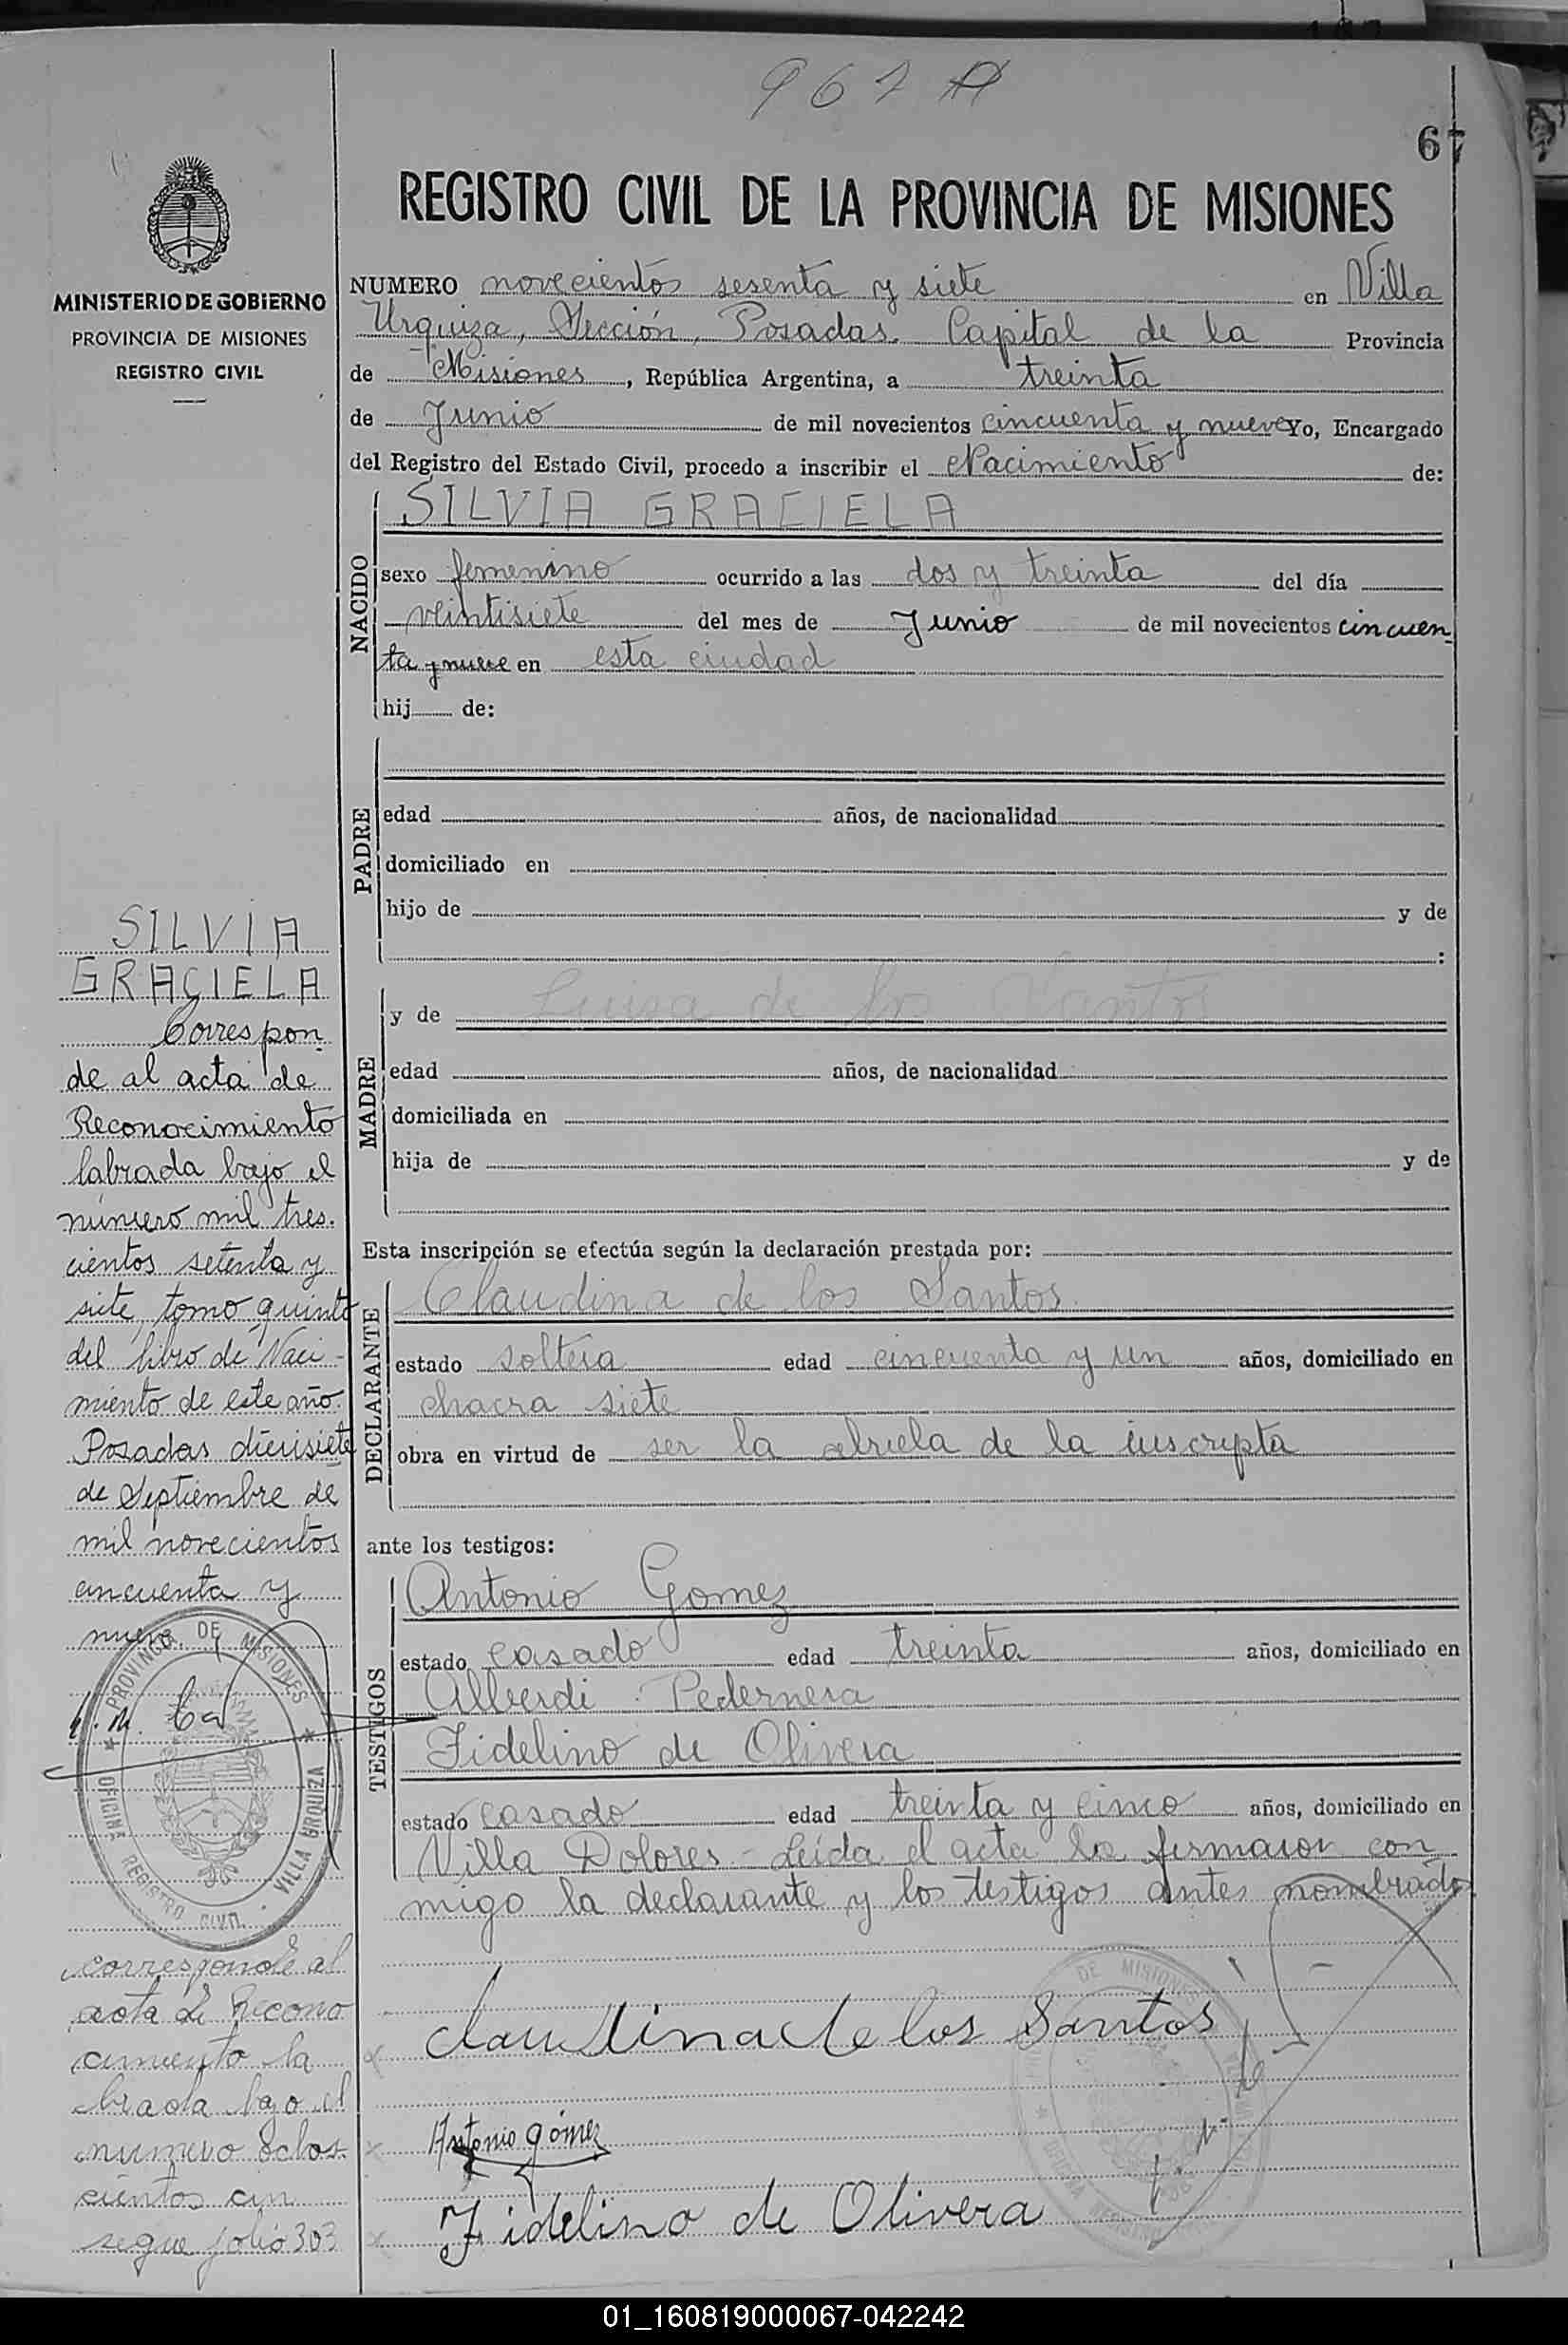 967 A
67
REGISTRO CIVIL DE LA PROVINCIA DE MISIONES
MINISTERIO DE GOBIERNO
PROVINCIA DE MISIONES
REGISTRO CIVIL
NUMERO novecientos sesenta y siete en Villa
Urquiza, Sección, Posadas. Capital de la Provincia
de Misiones, República Argentina, a treinta
de Junio de mil novecientos cincuenta y nueve Yo, Encargado
del Registro del Estado Civil, procedo a inscribir el Nacimiento de:
NACIDO
SILVIA GRACIELA
sexo femenino ocurrido a las dos y treinta del día
veintisiete del mes de Junio de mil novecientos cincuen
ta y nueve en esta ciudad
hij de:
PADRE
edad años, de nacionalidad
domiciliado en
hijo de y de
:
MADRE
y de Luisa de los Santos
edad años, de nacionalidad
domiciliada en
hija de y de
Esta inscripción se efectúa según la declaración prestada por:
DECLARANTE
Claudina de los Santos
estado soltera edad cincuenta y un años, domiciliado en
chacra siete
obra en virtud de ser la abuela de la inscripta
ante los testigos:
TESTIGOS
Antonio Gomez
estado casado edad treinta años, domiciliado en
Alberdi Pedernera
Fidelino de Olivera
estado casado edad treinta y cinco años, domiciliado en
Villa Dolores - Leída el acta la firmaron con
migo la declarante y los testigos antes nombrados
Claudina de los Santos
Antonio gómez
Fidelino de Olivera
SILVIA
GRACIELA
Correspon
de al acta de
Reconocimiento
labrada bajo el
número mil tres.
cientos setenta y
siete, tomo quinto
del libro de Naci-
miento de este año.
Posadas diecisiete
de Septiembre de
mil novecientos
cincuenta y
nueve
PROVINCIA DE MISIONES
OFICINA REGISTRO CIVIL VILLA URQUIZA
corresponde al
acta de Recono
cimiento la
brada bajo el
numero ochos
cientos cin
segue folio 303
DE MISIONES
01_160819000067-042242